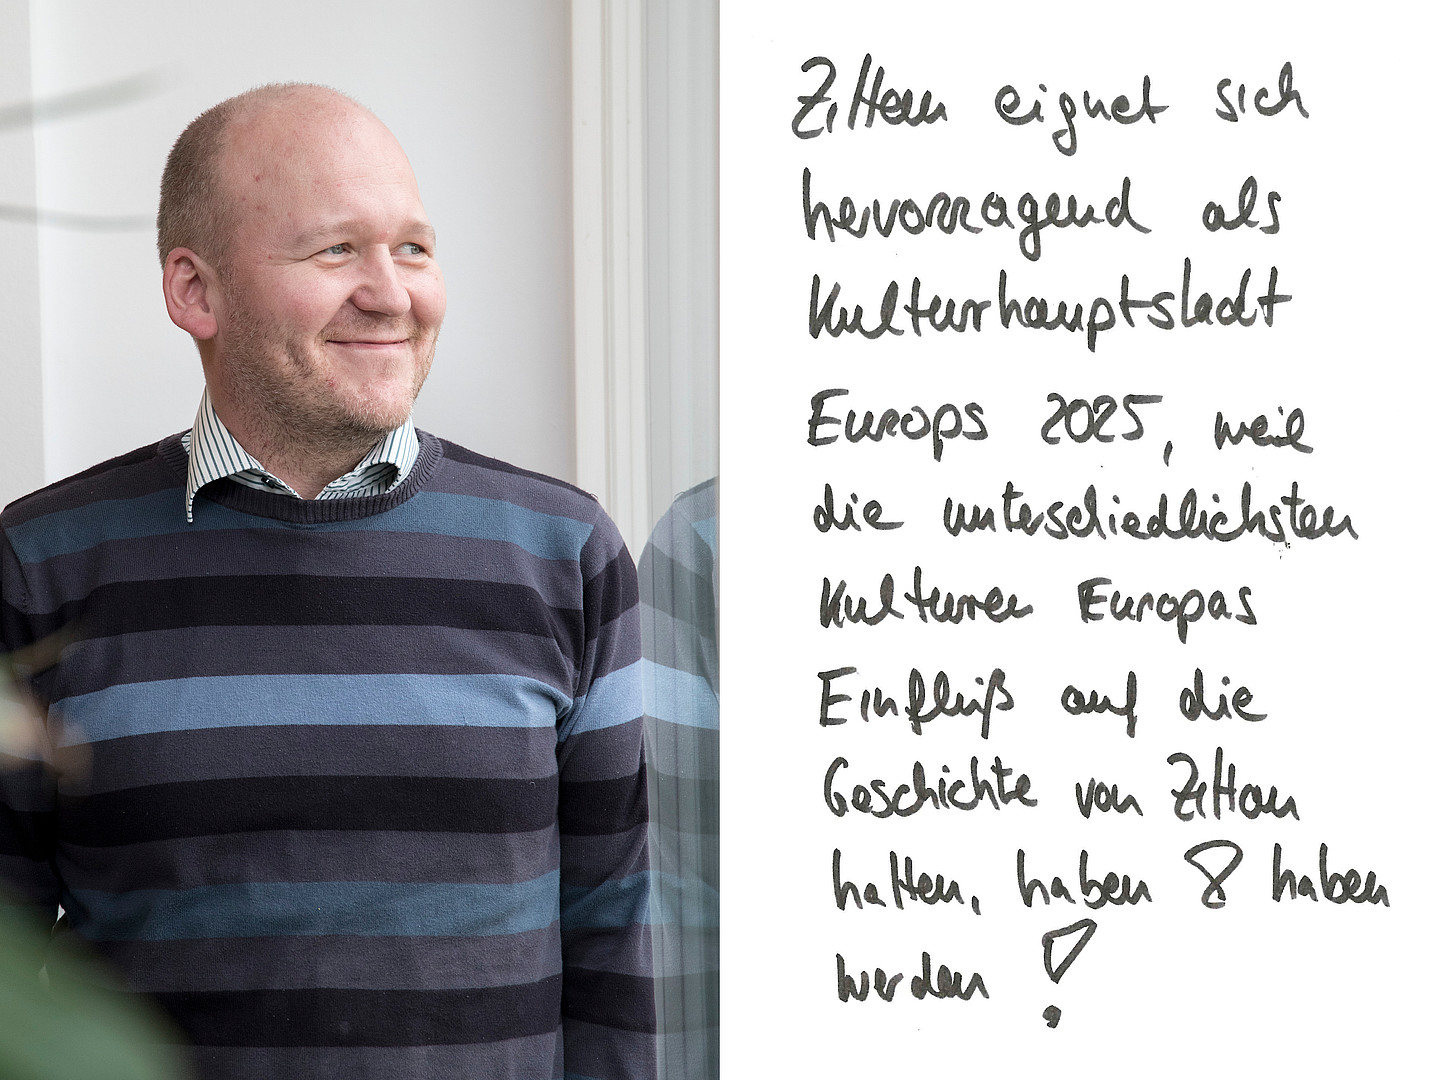 Zittau eignet sich
hervorragend als
Kulturhauptstadt
Europs 2025, weil
die unterschiedlichsten
Kulturen Europas
Einfluß auf die
Geschichte von Zittau
hatten, haben & haben
werden!